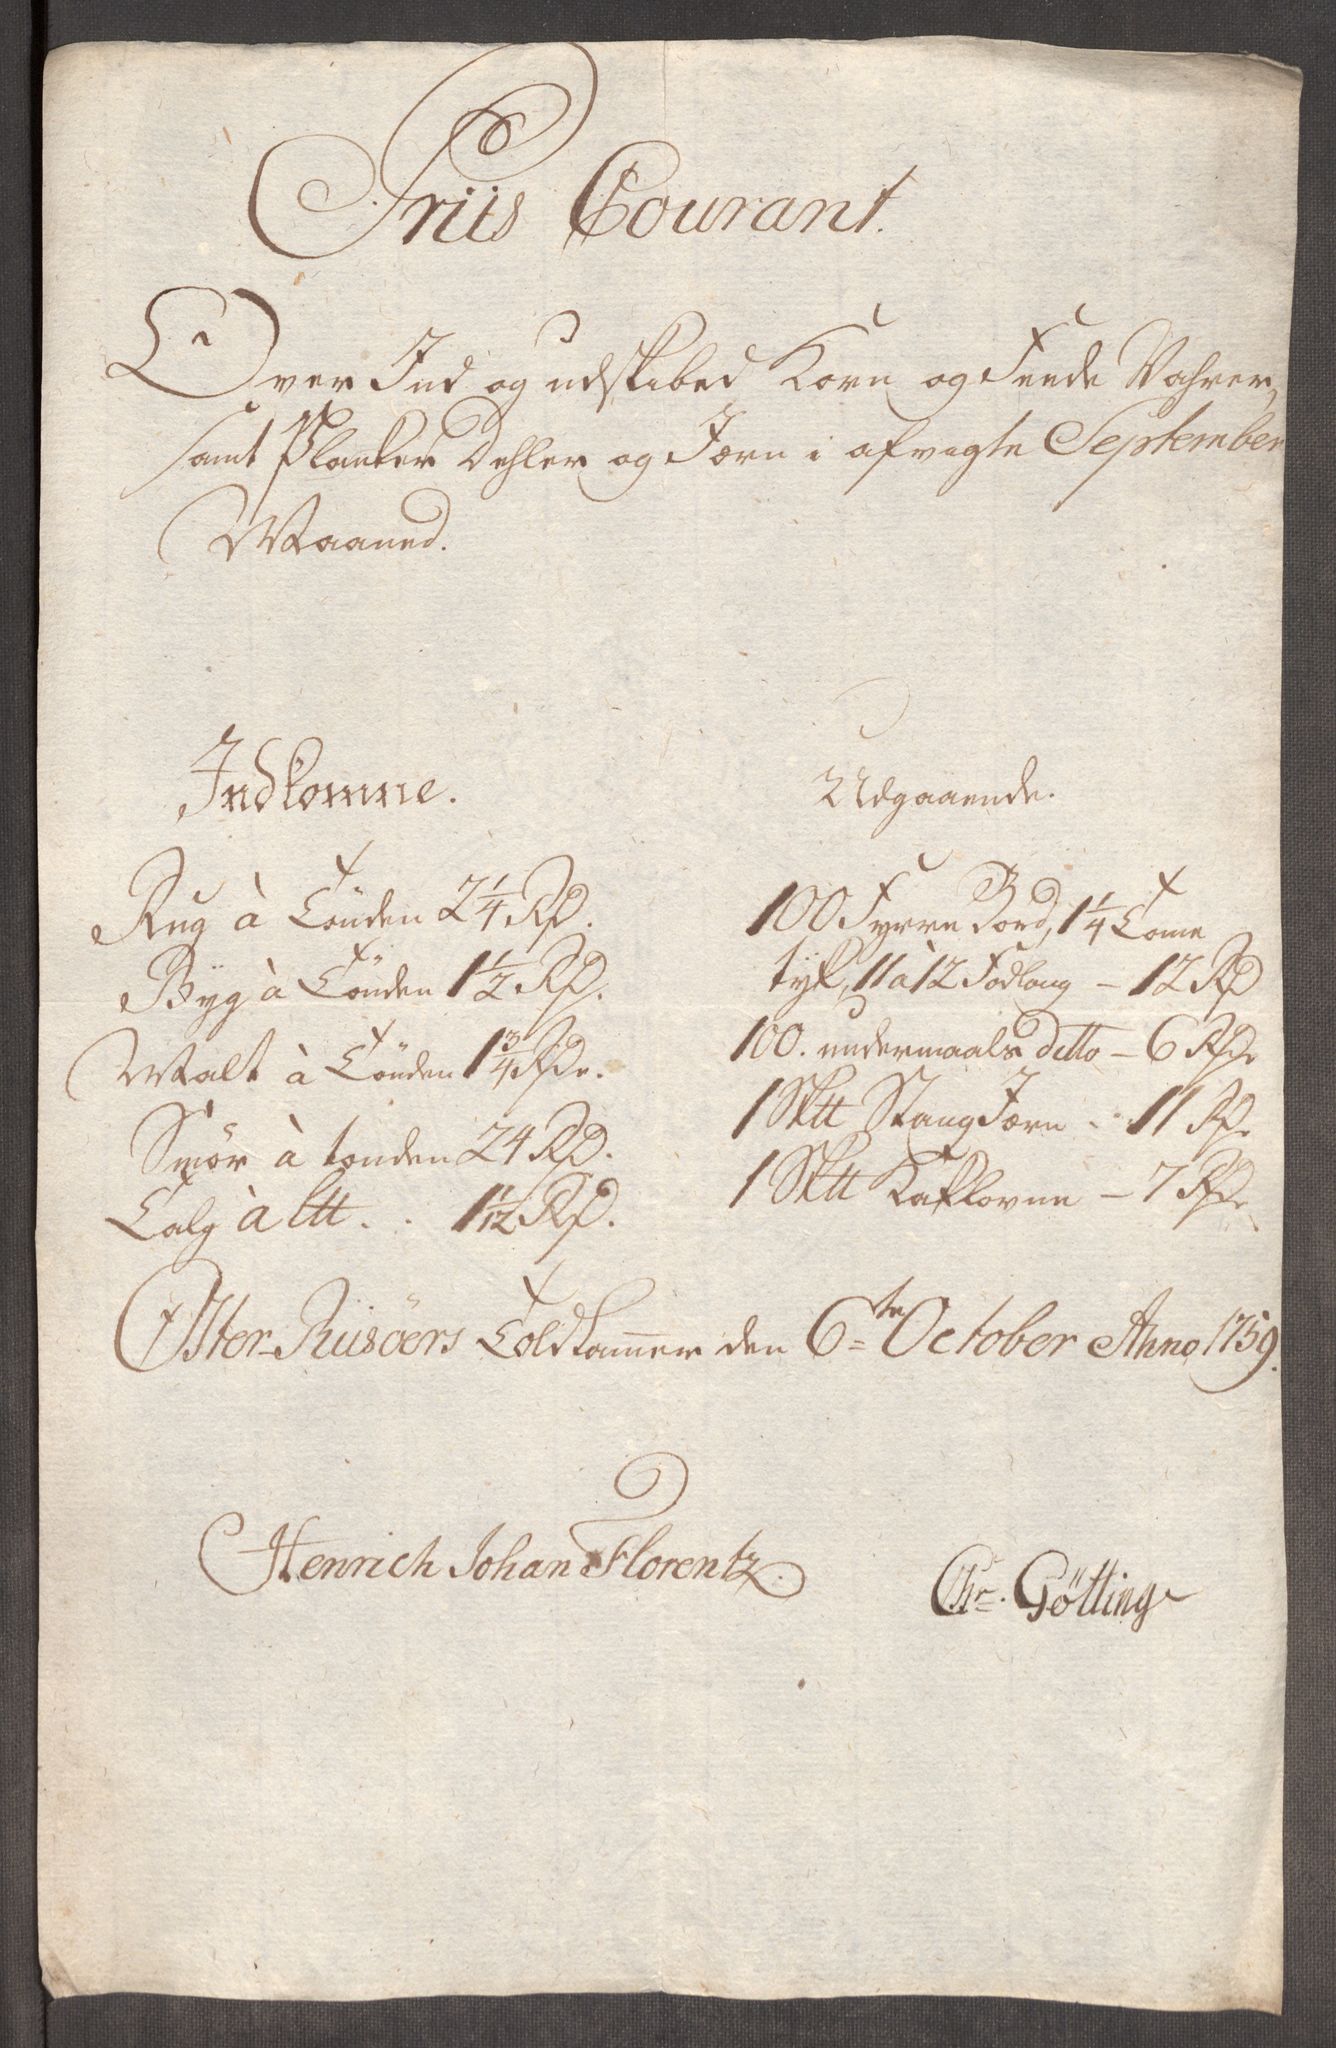 Priis Courant.
Over Ind og udskibed Korn og Feede Vahrer,
samt Planker Dehler og Jern i afvigte September
Maaned.
Indkomne.
Rug à Tönden 2 1/4 Rd.
Byg à Tönden 1 1/2 Rd.
Malt à Tönden 1 3/4 Rdr.
Smör à tonden 24 Rd.
Talg à Ltt. . . 1 1/12 Rd.
Udgaaende.
100 Fyrre Bord, 1 1/4 Tome
tyk, 11 à 12 Fod lang – 12 Rd
100. undermaals ditto – 6 Rdr
1 Sktt Stang Jern . . 11 Rd.
1 Sktt Kaklovne – 7 Rdr
Öster-Riisöers Toldkammer den 6=te October Anno 1759.
Henrich Johan Florentz.
Chr. Götting